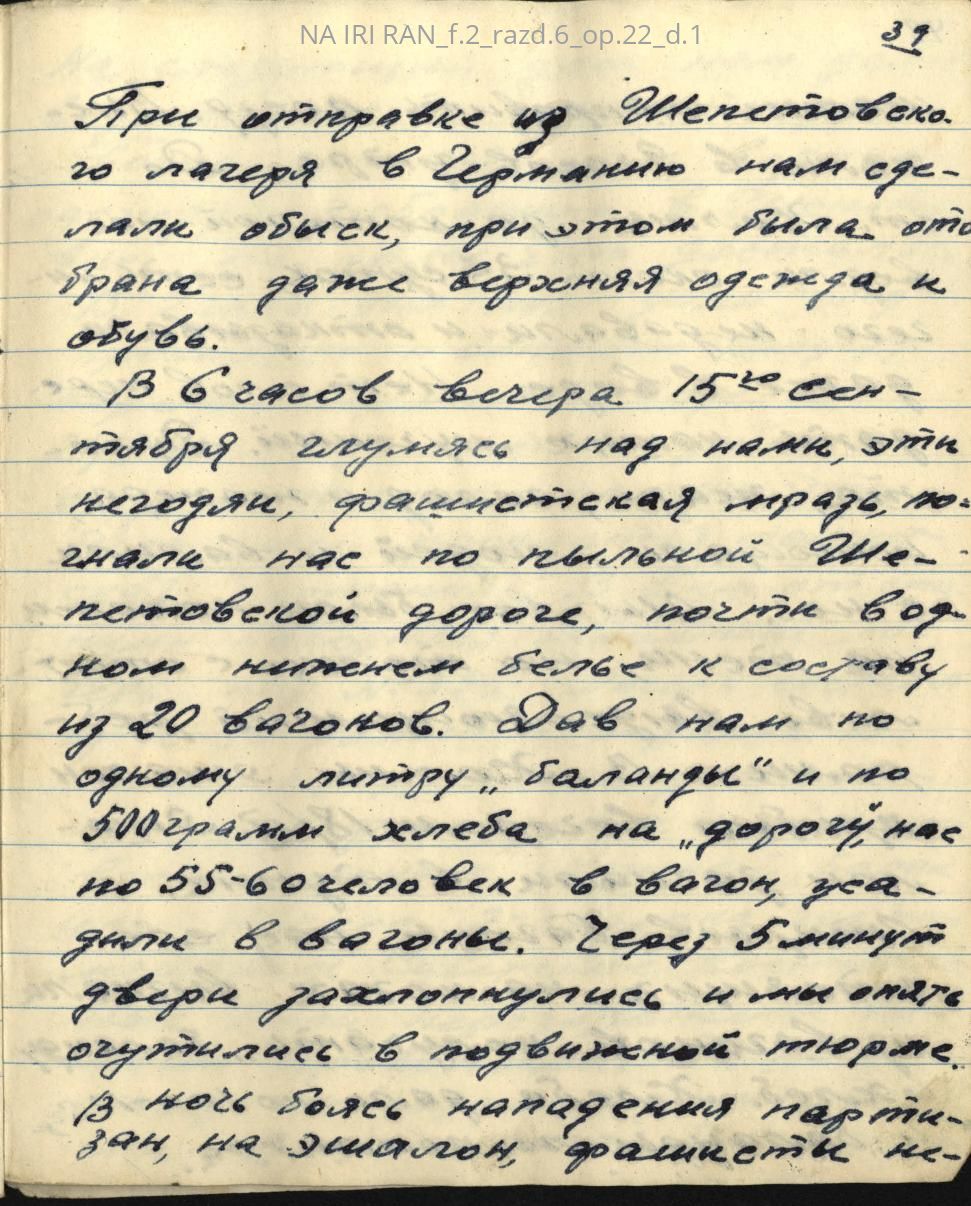 NA IRI RAN_f.2_razd.6_op.22_d.1
39
При отправке из Шепетовско-
го лагеря в Германию нам сде-
лали обыск, при этом была ото
брана даже верхняя одежда и
обувь.
В 6 часов вечера 15го сен-
тября глумясь над нами, эти
негодяи, фашистская мразь, по-
гнали нас по пыльной Ше-
петовской дороге, почти в од-
ном нижнем белье к составу
из 20 вагонов. Дав нам по
одному литру „баланды“ и по
500 грамм хлеба на „дорогу“, нас
по 55-60 человек в вагон, уса-
дили в вагоны. Через 5 минут
двери захлопнулись и мы опять
очутились в подвижной тюрме.
В ночь боясь нападения парти-
зан, на эшалон, фашисты не-